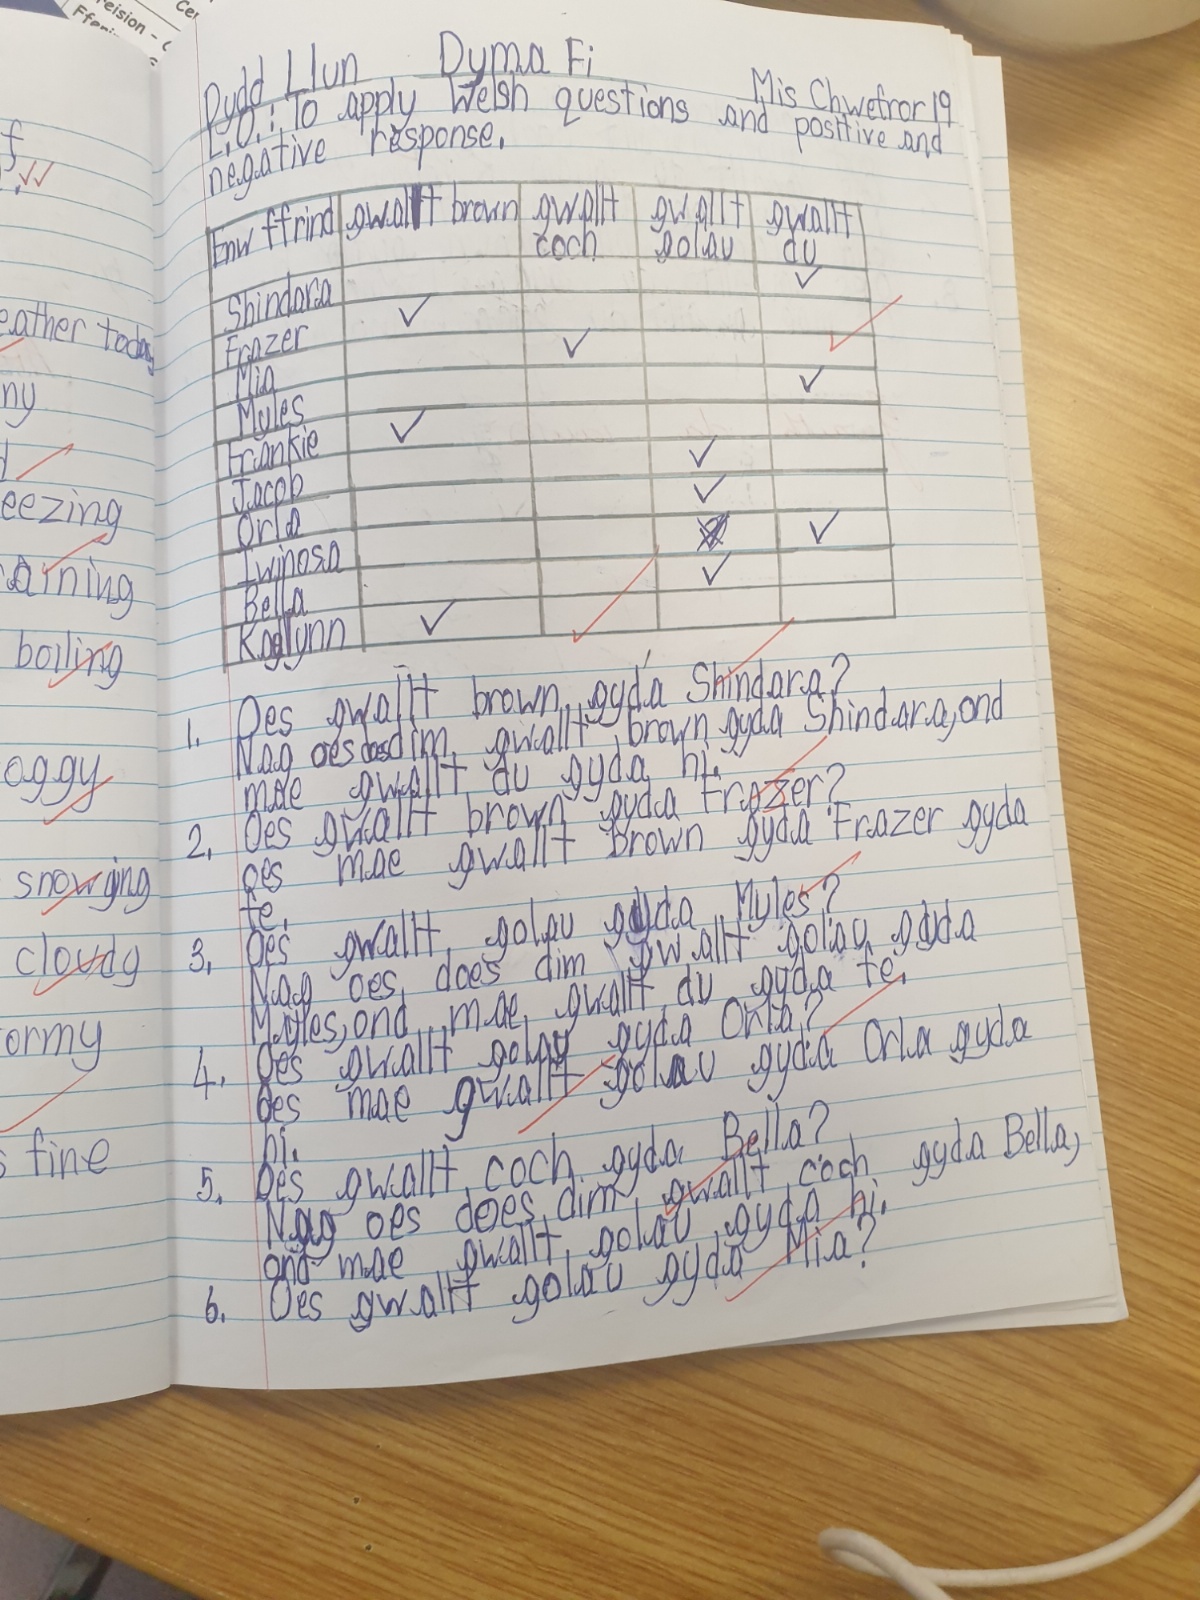 reision -
Dydd Llun Dyma Fi Mis Chwefror 19
L.O.: To apply Welsh questions and positive and
negative response.
Enw ffrind gwallt brown gwallt coch gwallt golau gwallt du
Shindara ✓
Frazer ✓
Mia ✓
Myles ✓
Frankie ✓
Jacob ✓
Orla ✓
Iwinosa ✓
Bella ✓
Kaelynn ✓
1. Oes gwallt brown gyda Shindara?
Nag oes does dim gwallt brown gyda Shindara, ond
mae gwallt du gyda hi.
2. Oes gwallt brown gyda Frazer?
oes mae gwallt brown gyda Frazer gyda
fe.
3. Oes gwallt golau gyda Myles?
Nag oes, does dim gwallt golau gyda
Myles, ond mae gwallt du gyda fe.
4. Oes gwallt golau gyda Orla?
Oes mae gwallt golau gyda Orla gyda
hi.
5. Oes gwallt coch gyda Bella?
Nag oes does dim gwallt coch gyda Bella,
ond mae gwallt golau gyda hi.
6. Oes gwallt golau gyda Mia?
eather today
ny
eezing
raining
boiling
oggy
snowing
cloudy
ormy
s fine